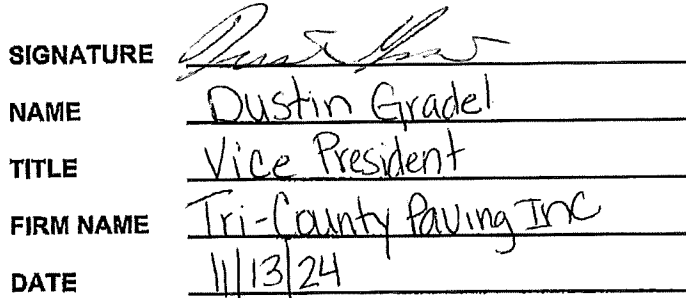 SIGNATURE
NAME Dustin Gradel
TITLE Vice President
FIRM NAME Tri-County Paving Inc
DATE 11/13/24